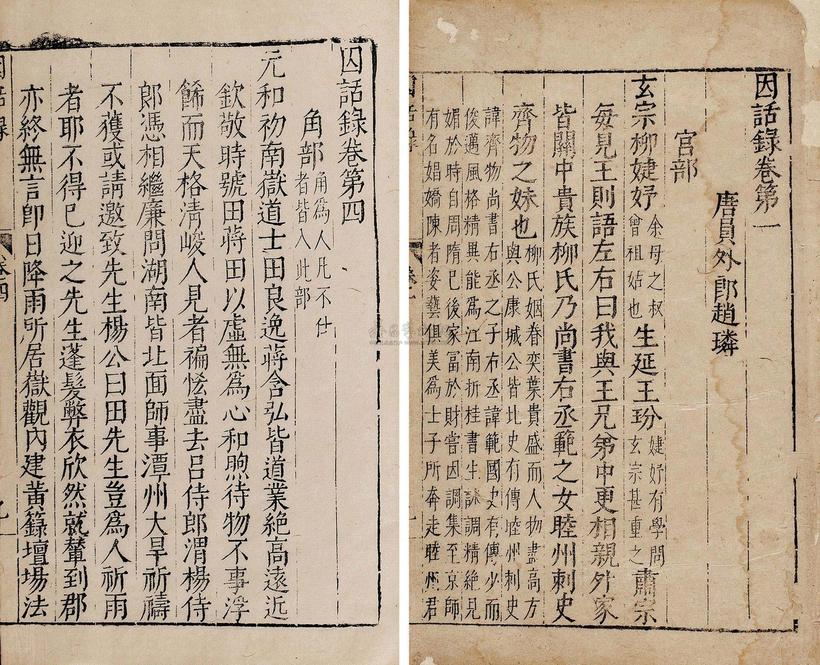 因話錄卷第一
唐員外郎趙璘
宮部
玄宗柳婕妤余母之叔曾祖姑也生延王玢婕妤有學問玄宗甚重之肅宗
每見王則語左右曰我與王兄弟中更相親外家
皆關中貴族柳氏乃尚書右丞範之女睦州刺史
齊物之妹也柳氏姻眷奕葉貴盛而人物盡高方與公康城公皆比史有傳睦州刺史
諱齊物尚書右丞之子右丞諱範國史有傳少而
俊邁風格精異能為江南折桂書生詠調精絕見
媚於時自周隋已後家富於財嘗因調集至京師
有名娼嬌陳者姿藝俱美為士子所奔走睦州君
因話錄卷第四
角部角為人凡不仕者皆入此部
元和初南嶽道士田良逸蔣含弘皆道業絕高遠近
欽敬時號田蔣田以虛無為心和煦待物不事浮
飾而天格清峻人見者褊恡盡去呂侍郎渭楊侍
郎憑相繼廉問湖南皆北面師事潭州大旱祈禱
不獲或請邀致先生楊公曰田先生豈為人祈雨
者耶不得已迎之先生蓬髮弊衣欣然就輦到郡
亦終無言即日降雨所居嶽觀內建黃籙壇場法